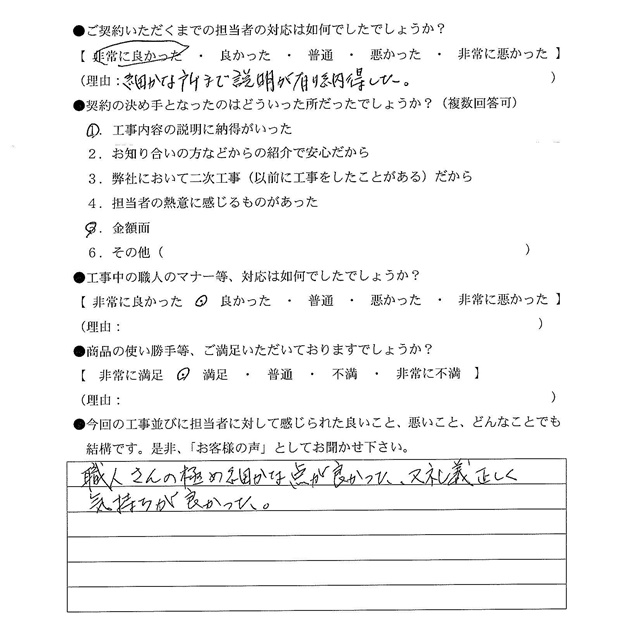 ●ご契約いただくまでの担当者の対応は如何でしたでしょうか？
【 非常に良かった ・ 良かった ・ 普通 ・ 悪かった ・ 非常に悪かった 】
（理由：細かな所まで説明が有り納得した。 ）
●契約の決め手となったのはどういった所だったでしょうか？（複数回答可）
１．工事内容の説明に納得がいった
２．お知り合いの方などからの紹介で安心だから
３．弊社において二次工事（以前に工事をしたことがある）だから
４．担当者の熱意に感じるものがあった
５．金額面
６．その他（ ）
●工事中の職人のマナー等、対応は如何でしたでしょうか？
【 非常に良かった ・ 良かった ・ 普通 ・ 悪かった ・ 非常に悪かった 】
（理由： ）
●商品の使い勝手等、ご満足いただいておりますでしょうか？
【 非常に満足 ・ 満足 ・ 普通 ・ 不満 ・ 非常に不満 】
（理由： ）
●今回の工事並びに担当者に対して感じられた良いこと、悪いこと、どんなことでも
結構です。是非、「お客様の声」としてお聞かせ下さい。
職人さんの極め細かな点が良かった、又礼義正しく
気持ちが良かった。